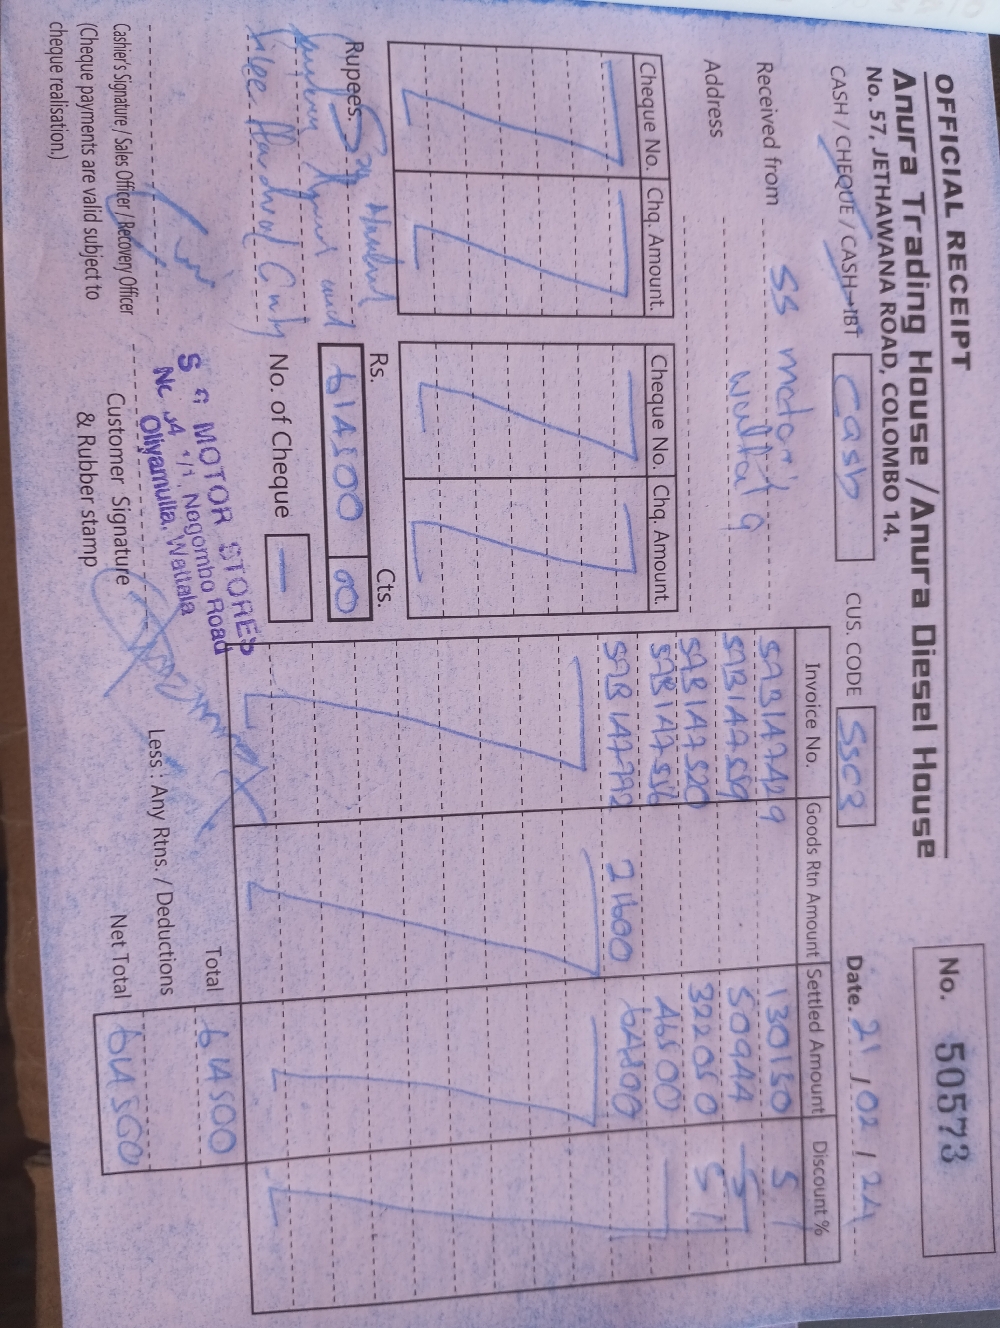 OFFICIAL RECEIPT
No. 50573
Anura Trading House / Anura Diesel House
No. 57, JETHAWANA ROAD, COLOMBO 14.
CASH / CHEQUE / CASH-IBT Cash CUS. CODE SSC2 Date. 21 / 02 / 24
Received from SS motor
Address
Cheque No. Chq. Amount. Cheque No. Chq. Amount.
Invoice No. Goods Rtn Amount Settled Amount Discount %
SAB147429 130150 5
SAB147589 50944 5
SAB147520 322050 5
SAB147516 46500
SAB147772 21600 64800
Rs. Cts.
Rupees. Six Hundred
614500 00
and
Five Hundred Only
No. of Cheque —
Total 614500
Less : Any Rtns. / Deductions
Net Total 614500
S S MOTOR STORES
Negombo Road
Oliyamulla, Wattala
Cashier's Signature / Sales Officer / Recovery Officer
(Cheque payments are valid subject to
cheque realisation.)
Customer Signature
& Rubber stamp